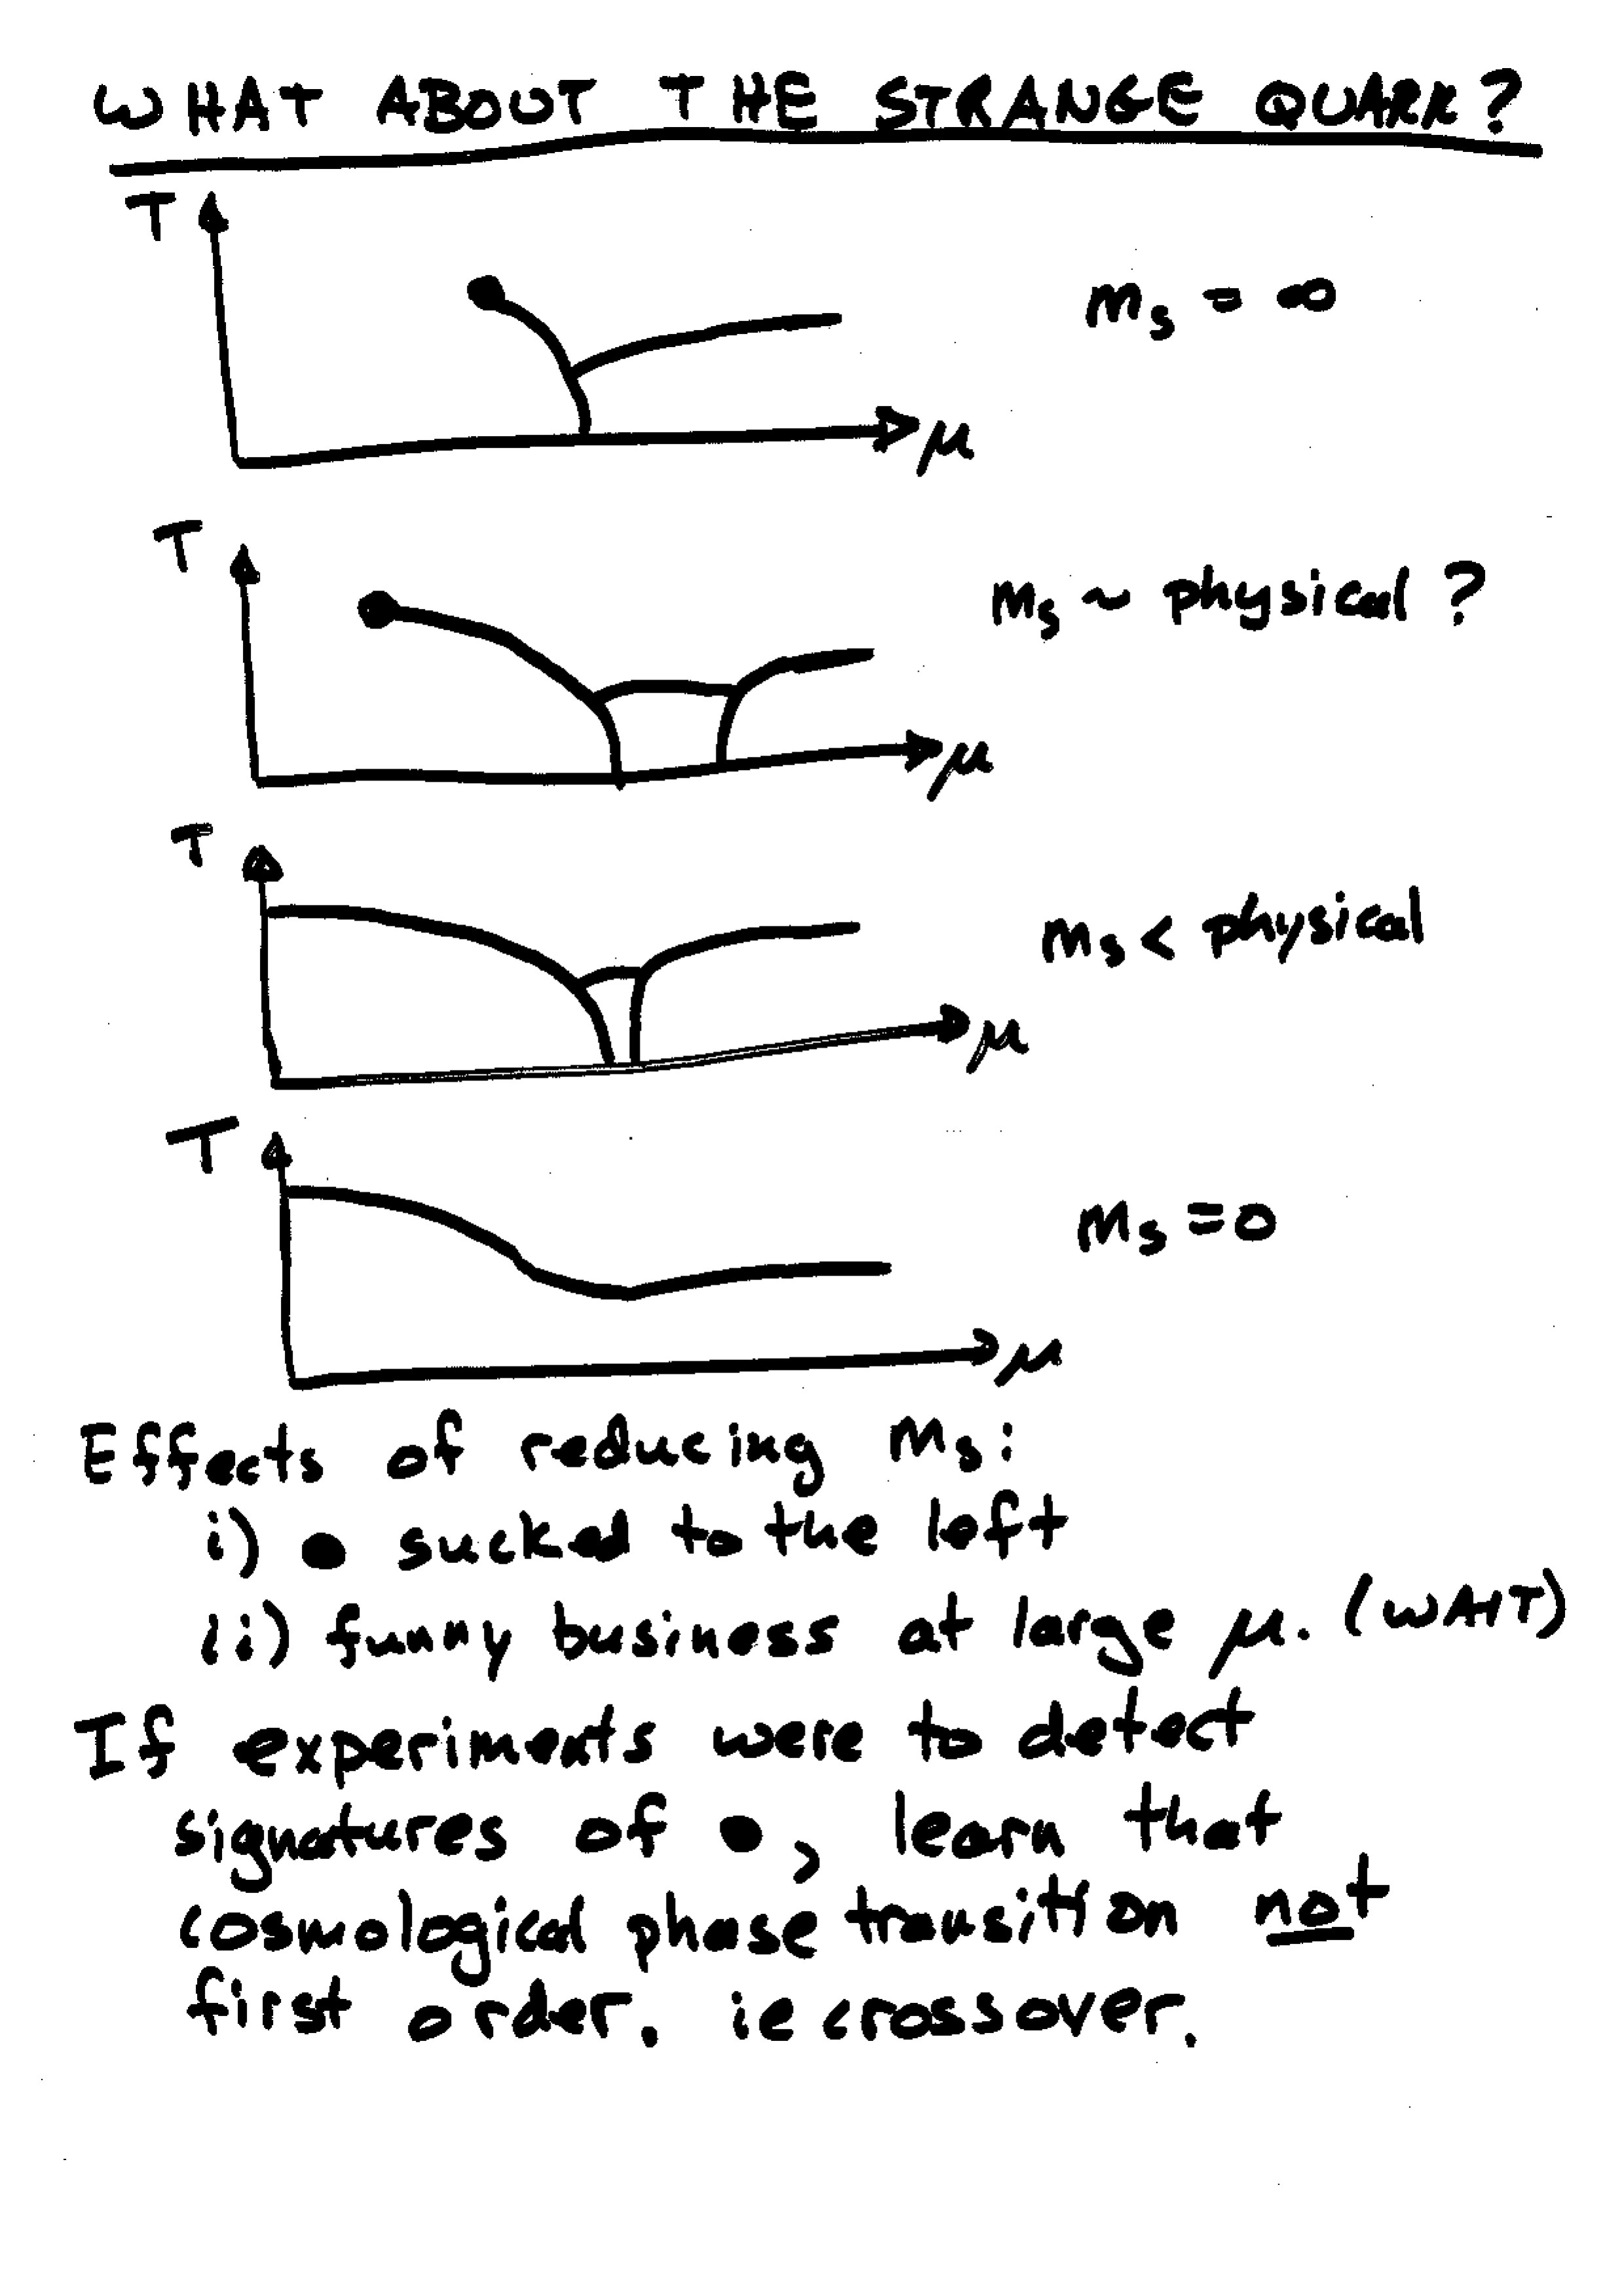 WHAT ABOUT THE STRANGE QUARK?
T
m_s = ∞
μ
T
m_s ~ physical ?
μ
T
m_s < physical
μ
T
m_s = 0
μ
Effects of reducing m_s:
i) ● sucked to the left
ii) funny business at large μ. (WAIT)
If experiments were to detect
signatures of ●, learn that
cosmological phase transition not
first order. ie crossover.